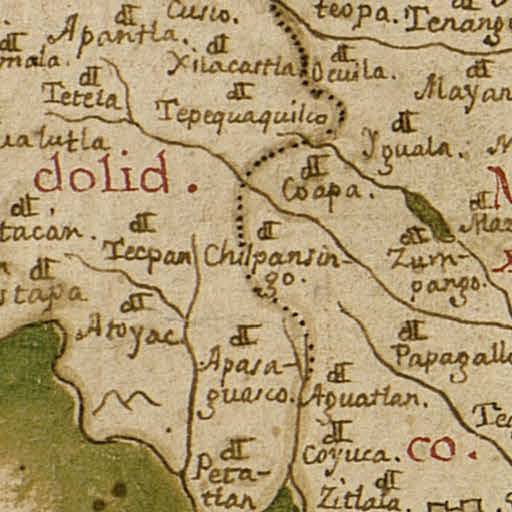 Cusio.
teopa.
Tenang
Apantla.
mala.
Xilacartla
Ocuila.
Tetela
Mayan
Tepequaquilco
ualutla
Yguala.
dolid.
Coapa.
tacan.
Maz
Tecpan
Chilpansin-
go.
Zum-
pango.
stapa
Atoyac
Papagallo
Apasa-
guasco.
Aguatlan.
Coyuca.
co.
Peta-
tlan
Zitlala.